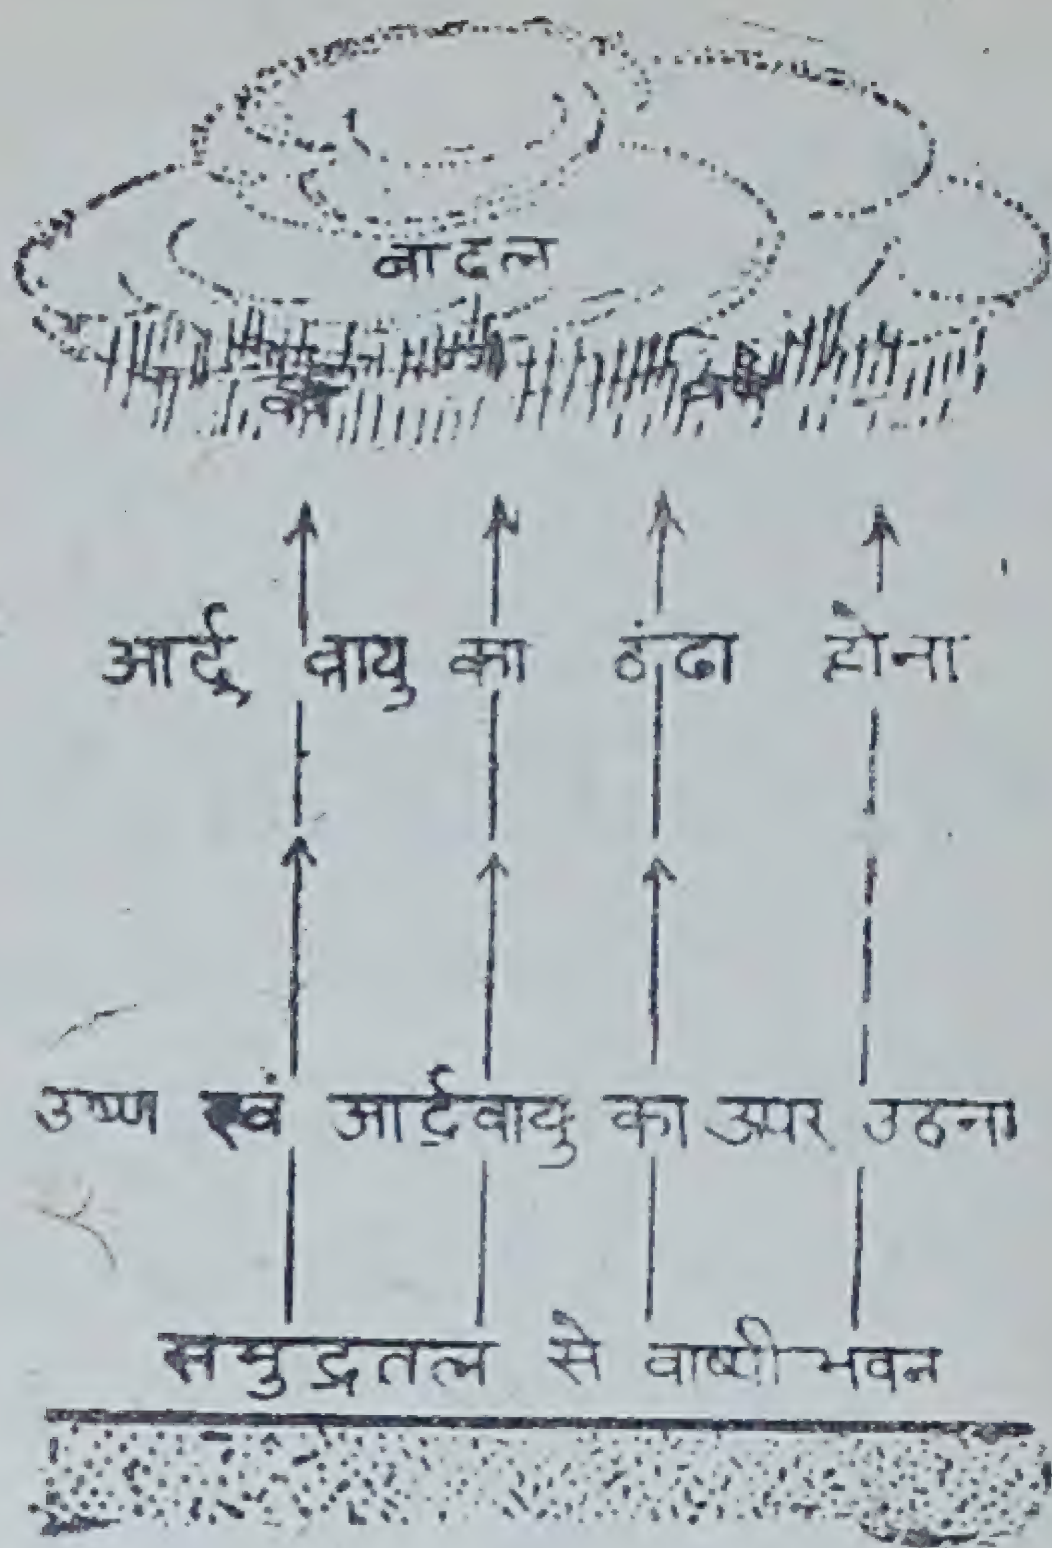 बादल
आर्द्र वायु का ठंढा होना
उष्ण एवं आर्द्रवायु का उपर उठना
समुद्रतल से वाष्पीभवन